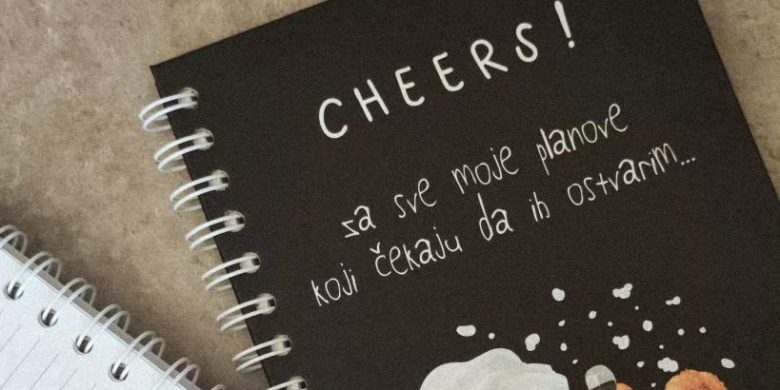 CHEERS!
za sve moje planove
koji čekaju da ih ostvarim...